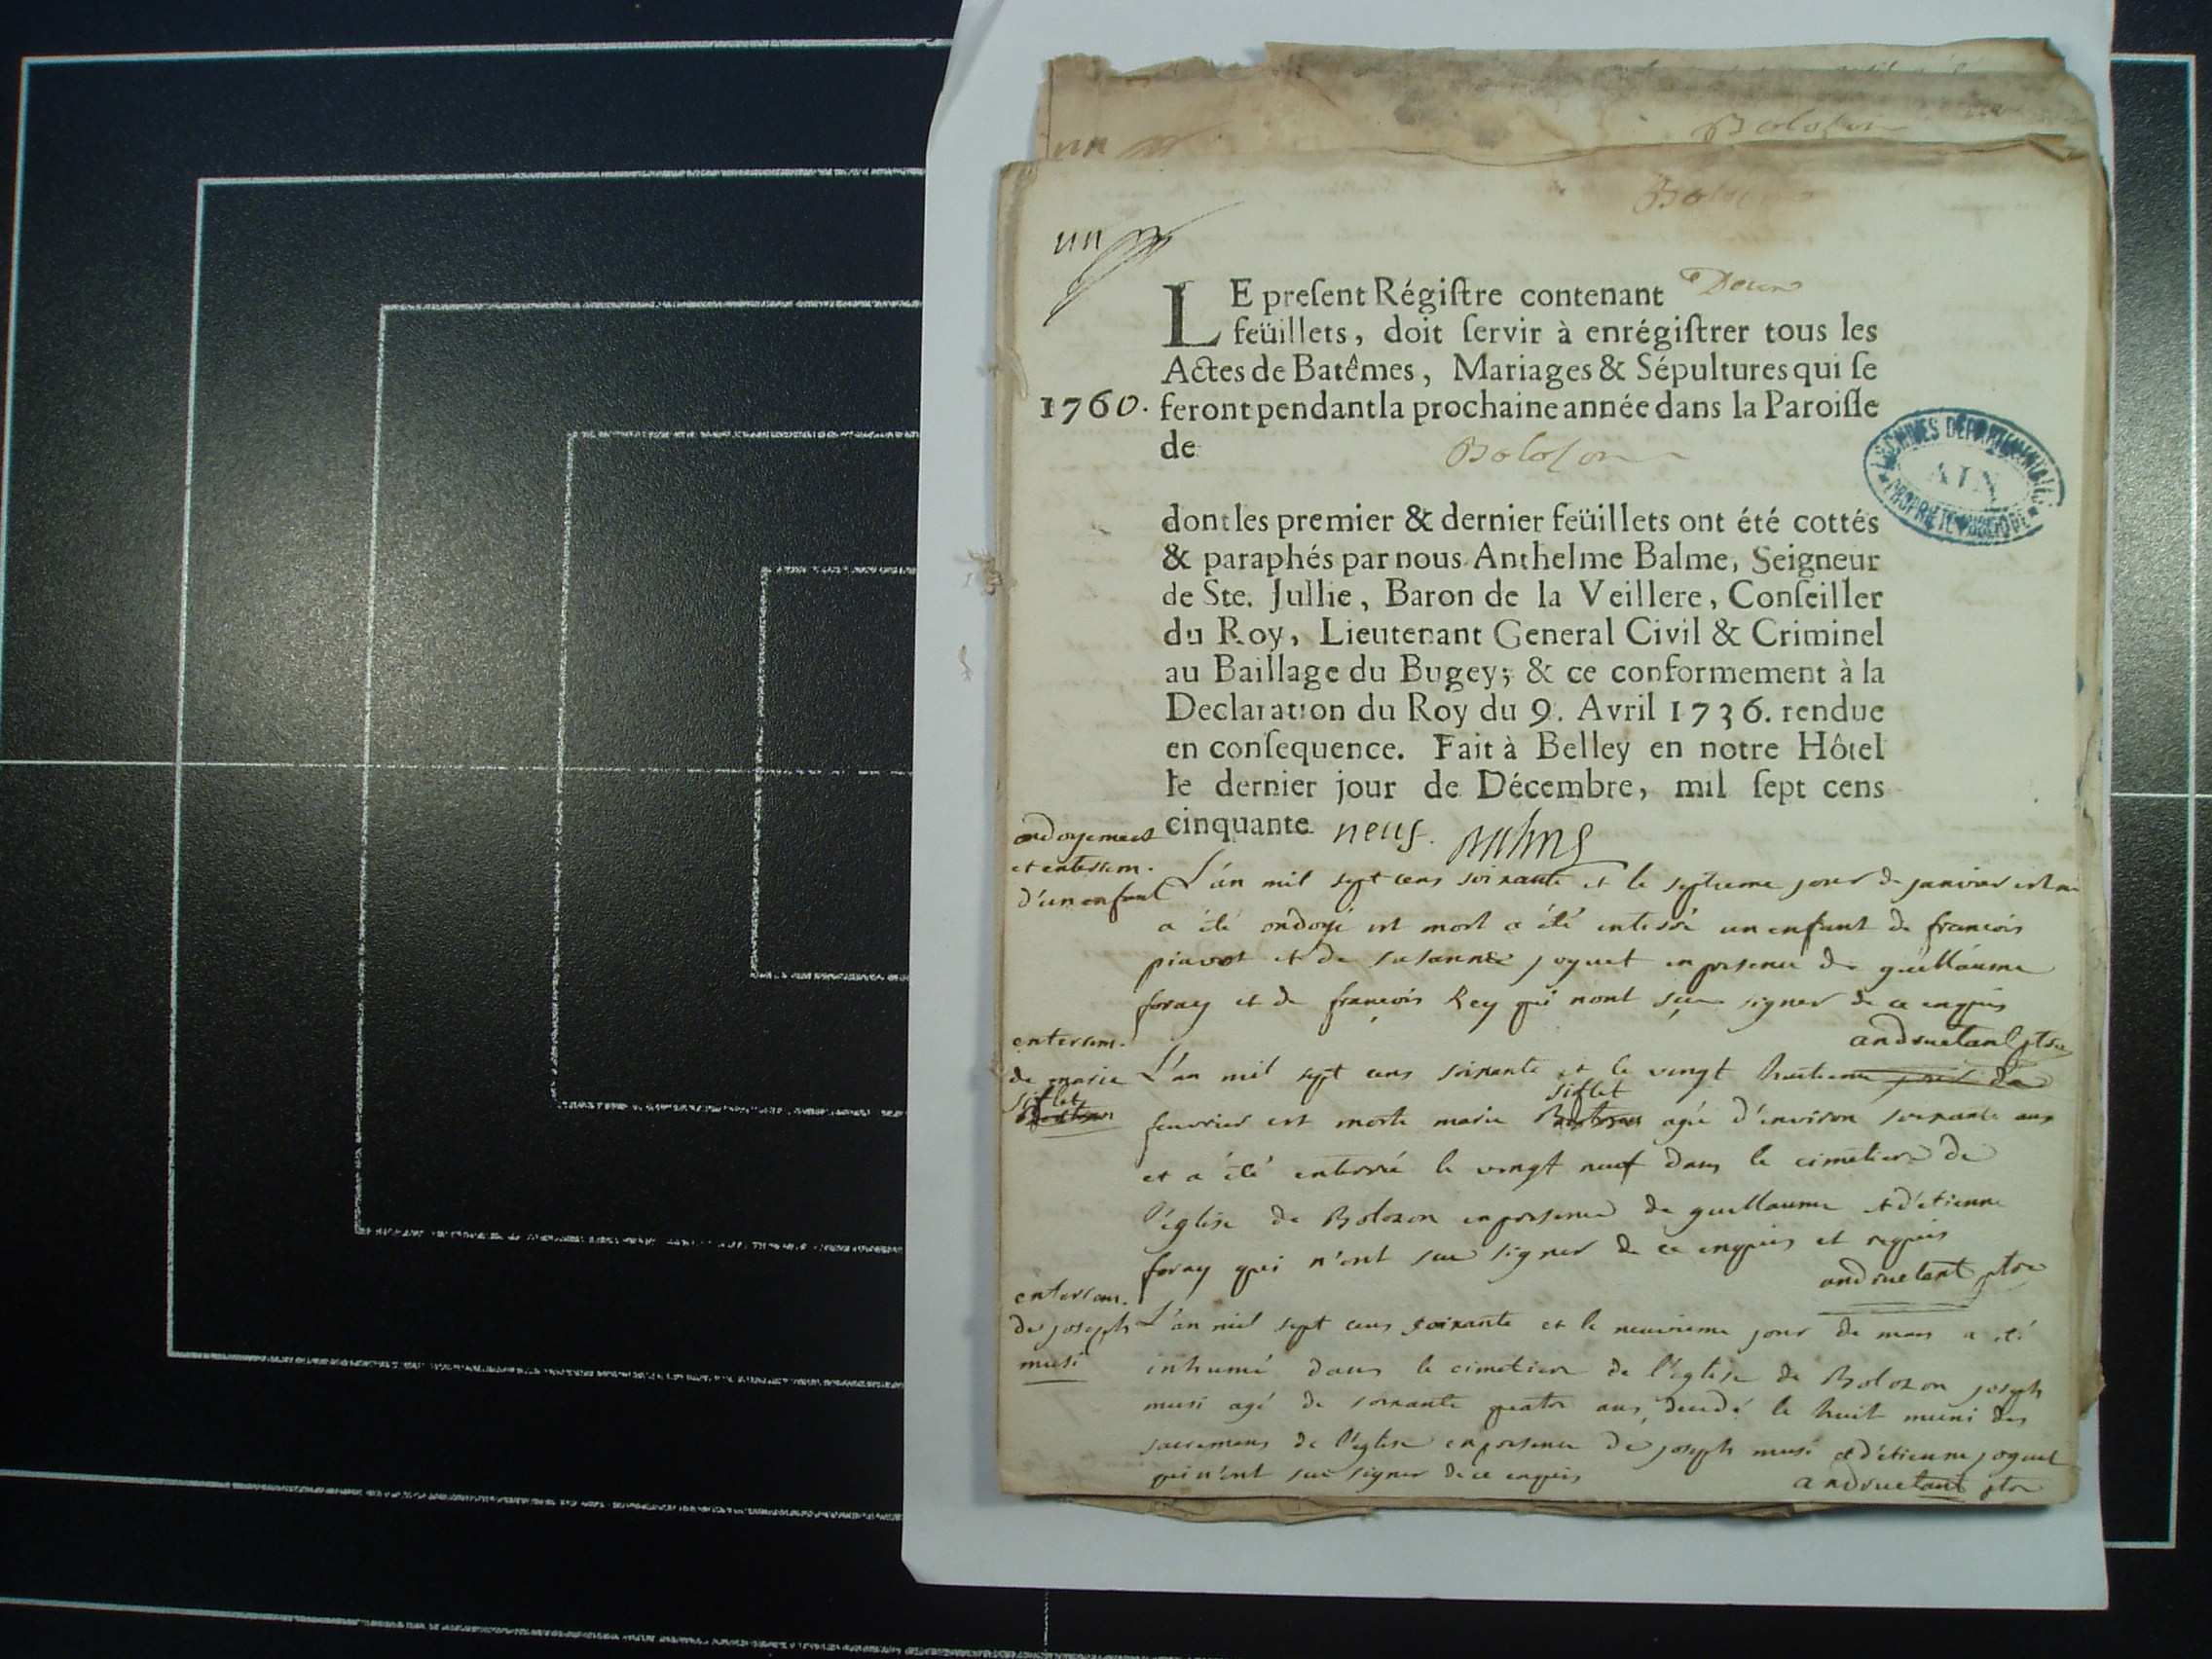 Bolozon
Bolozon
un
LE preſent Régiſtre contenant Deux
feüillets, doit ſervir à enrégiſtrer tous les
Actes de Batêmes, Mariages & Sépultures qui ſe
1760. feront pendant la prochaine année dans la Paroiſſe
de Bolozon
ARCHIVES DEPARTEMENTALES
AIN
PROPRIETE PUBLIQUE
dont les premier & dernier feüillets ont été cottés
& paraphés par nous Anthelme Balme, Seigneur
de Ste. Jullie, Baron de la Veillere, Conſeiller
du Roy, Lieutenant General Civil & Criminel
au Baillage du Bugey; & ce conformement à la
Declaration du Roy du 9. Avril 1736. rendue
en conſequence. Fait à Belley en notre Hôtel
le dernier jour de Décembre, mil ſept cens
cinquante neuf. Balme
ondoyement
et enterrem.
d'un enfant
L'an mil sept cens soixante et le septieme jour de janvier est né
a été ondoyé est mort a été enterré un enfant de francois
piavot et de susanne joquet en presence de guillaume
foray et de françois Rey qui n'ont sçu signer de ce enquis
andruetant ptre
enterrem.
de marie
siflet
L'an mil sept cens soixante et le vingt huitieme jour de
siflet
fevrier est morte marie agée d'environ soixante ans
et a été enterrée le vingt neuf dans le cimetiere de
l'église de Bolozon en presence de guillaume et d'étienne
foray qui n'ont sue signer de ce enquis et requis
andruetant ptre
enterrem.
de joseph
musi
L'an mil sept cens soixante et le neuvieme jour de mars a été
inhumé dans le cimetiere de l'église de Bolozon joseph
musi agé de soixante quatre ans, decedé le huit muni des
sacremens de l'eglise en presence de joseph musi et d'étienne joquet
qui n'ont sue signer de ce enquis
andruetant ptre